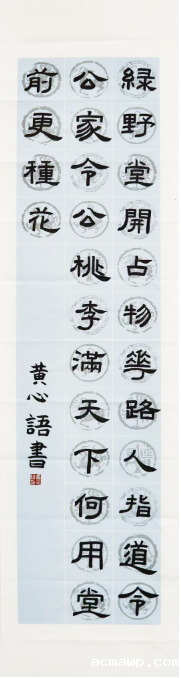 綠野堂開占物華路人指道令
公家令公桃李滿天下何用堂
前更種花
黃心語書
acmawp.com